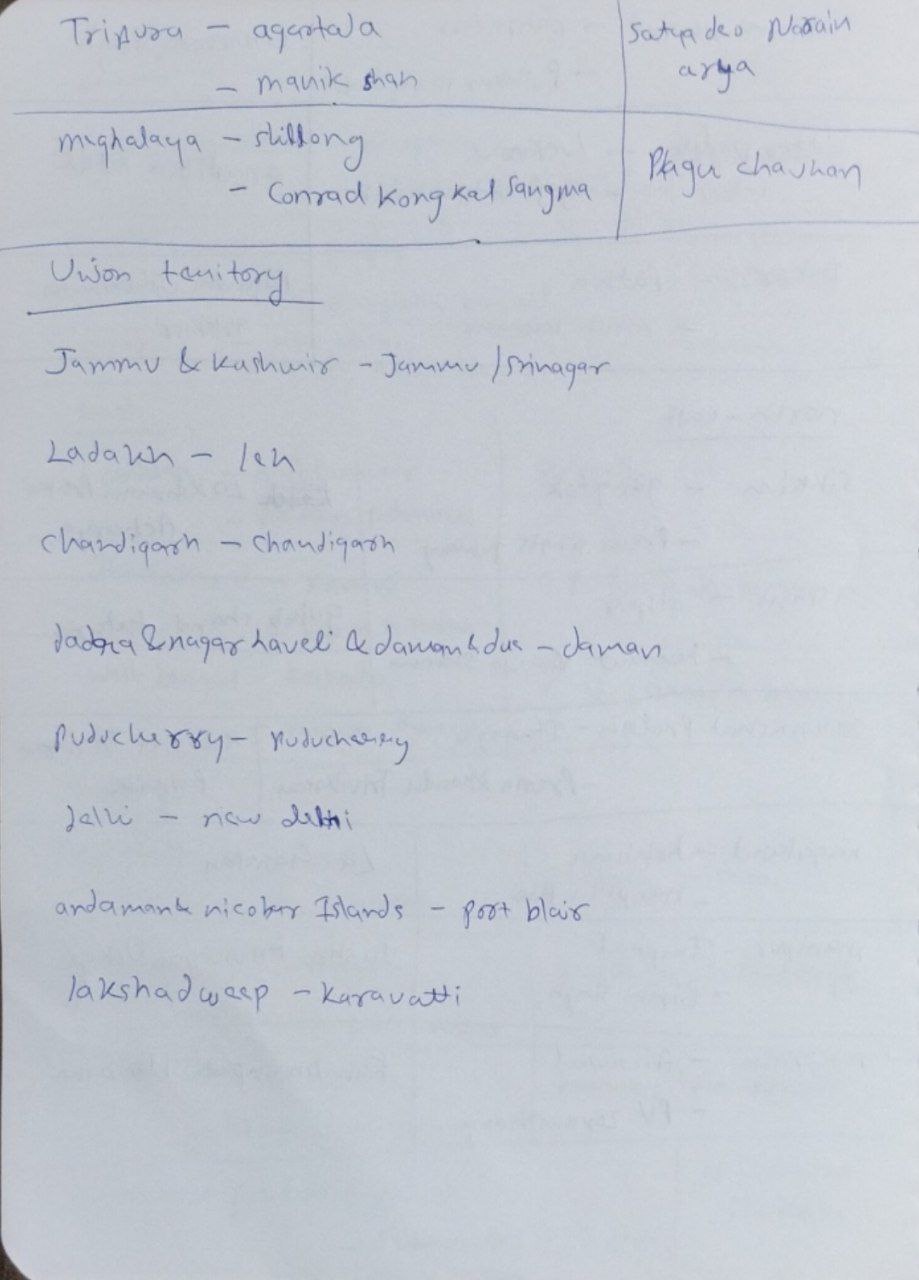 Tripura - agartala
- manik shah
Satya deo Narain
arya
meghalaya - shillong
- Conrad Kongkal Sangma
Phagu chauhan
Union territory
Jammu & Kashmir - Jammu / Srinagar
Ladakh - leh
Chandigarh - Chandigarh
dadra & nagar haveli & daman & diu - daman
Puducherry - Puducherry
delhi - new delhi
andaman & nicobar Islands - port blair
lakshadweep - Karavatti